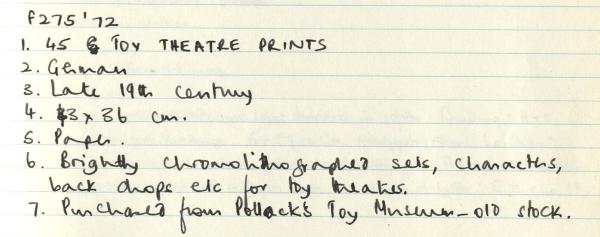 F275'72
1. 45 TOY THEATRE PRINTS
2. German
3. Late 19th century
4. 43 x 36 cm.
5. Paper.
6. Brightly chromolithographed sets, characters,
back drops etc for toy theatres.
7. Purchased from Pollock's Toy Museum - old stock.